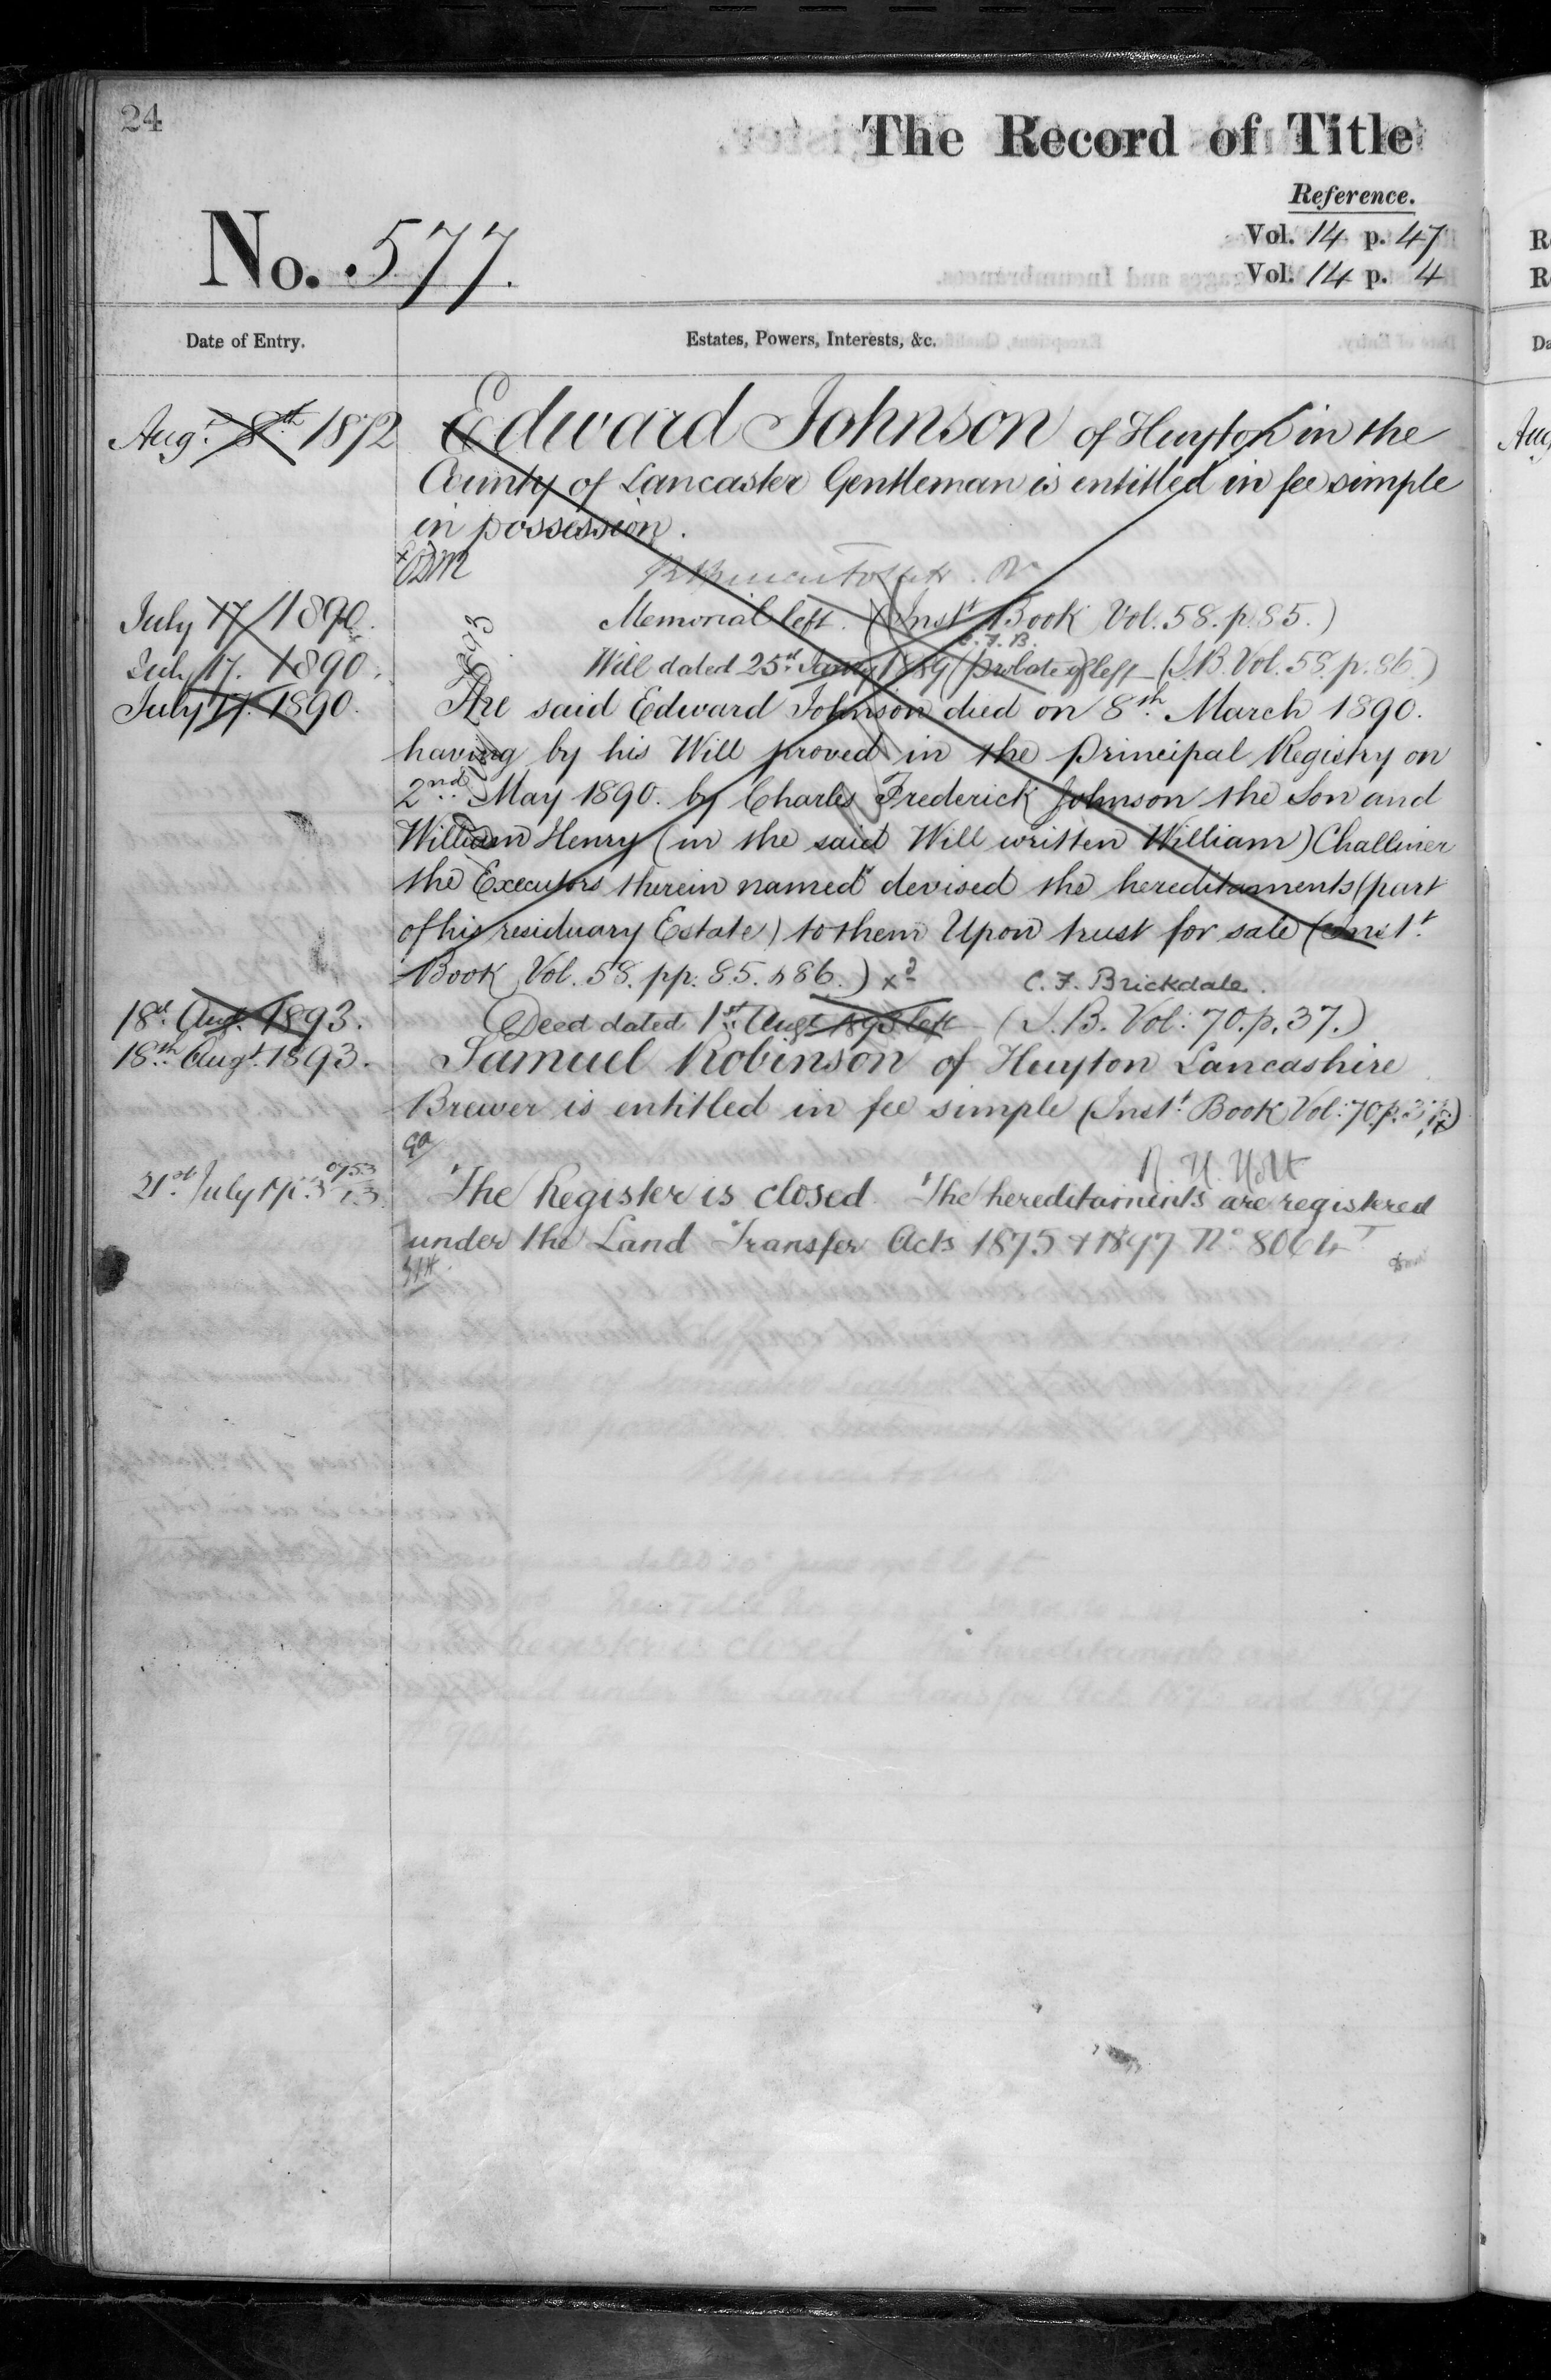 24
The Record of Title
Reference.
Vol. 14 p. 47
Vol. 14 p. 4
No. 577.
Date of Entry.
Estates, Powers, Interests, &c.
Augt. 8th 1872
Edward Johnson of Huyton in the
County of Lancaster Gentleman is entitled in fee simple
in possession.
July 17 1890.
Memorial left. (Inst Book Vol. 58. p. 85.)
C.F.B.
July 17. 1890.
Will dated 25th 1889 (probate of) left (I.B. Vol. 58. p. 86.)
July 17. 1890.
The said Edward Johnson died on 8th March 1890.
having by his Will proved in the Principal Registry on
2nd May 1890. by Charles Frederick Johnson the Son and
William Henry (in the said Will written William) Challiner
the Executors therein named devised the hereditaments (part
of his residuary Estate) to them Upon trust for sale (Inst.
Book Vol. 58. pp. 85. & 86.)
C. F. Brickdale.
18th Augt. 1893.
Deed dated 1st Augt 1893 left (I.B. Vol: 70. p. 37.)
18th Augt. 1893.
Samuel Robinson of Huyton Lancashire
Brewer is entitled in fee simple (Inst. Book Vol: 70. p. 37.)
21st July
The Register is closed. The hereditaments are registered
under the Land Transfer Acts 1875 & 1897 No 8064